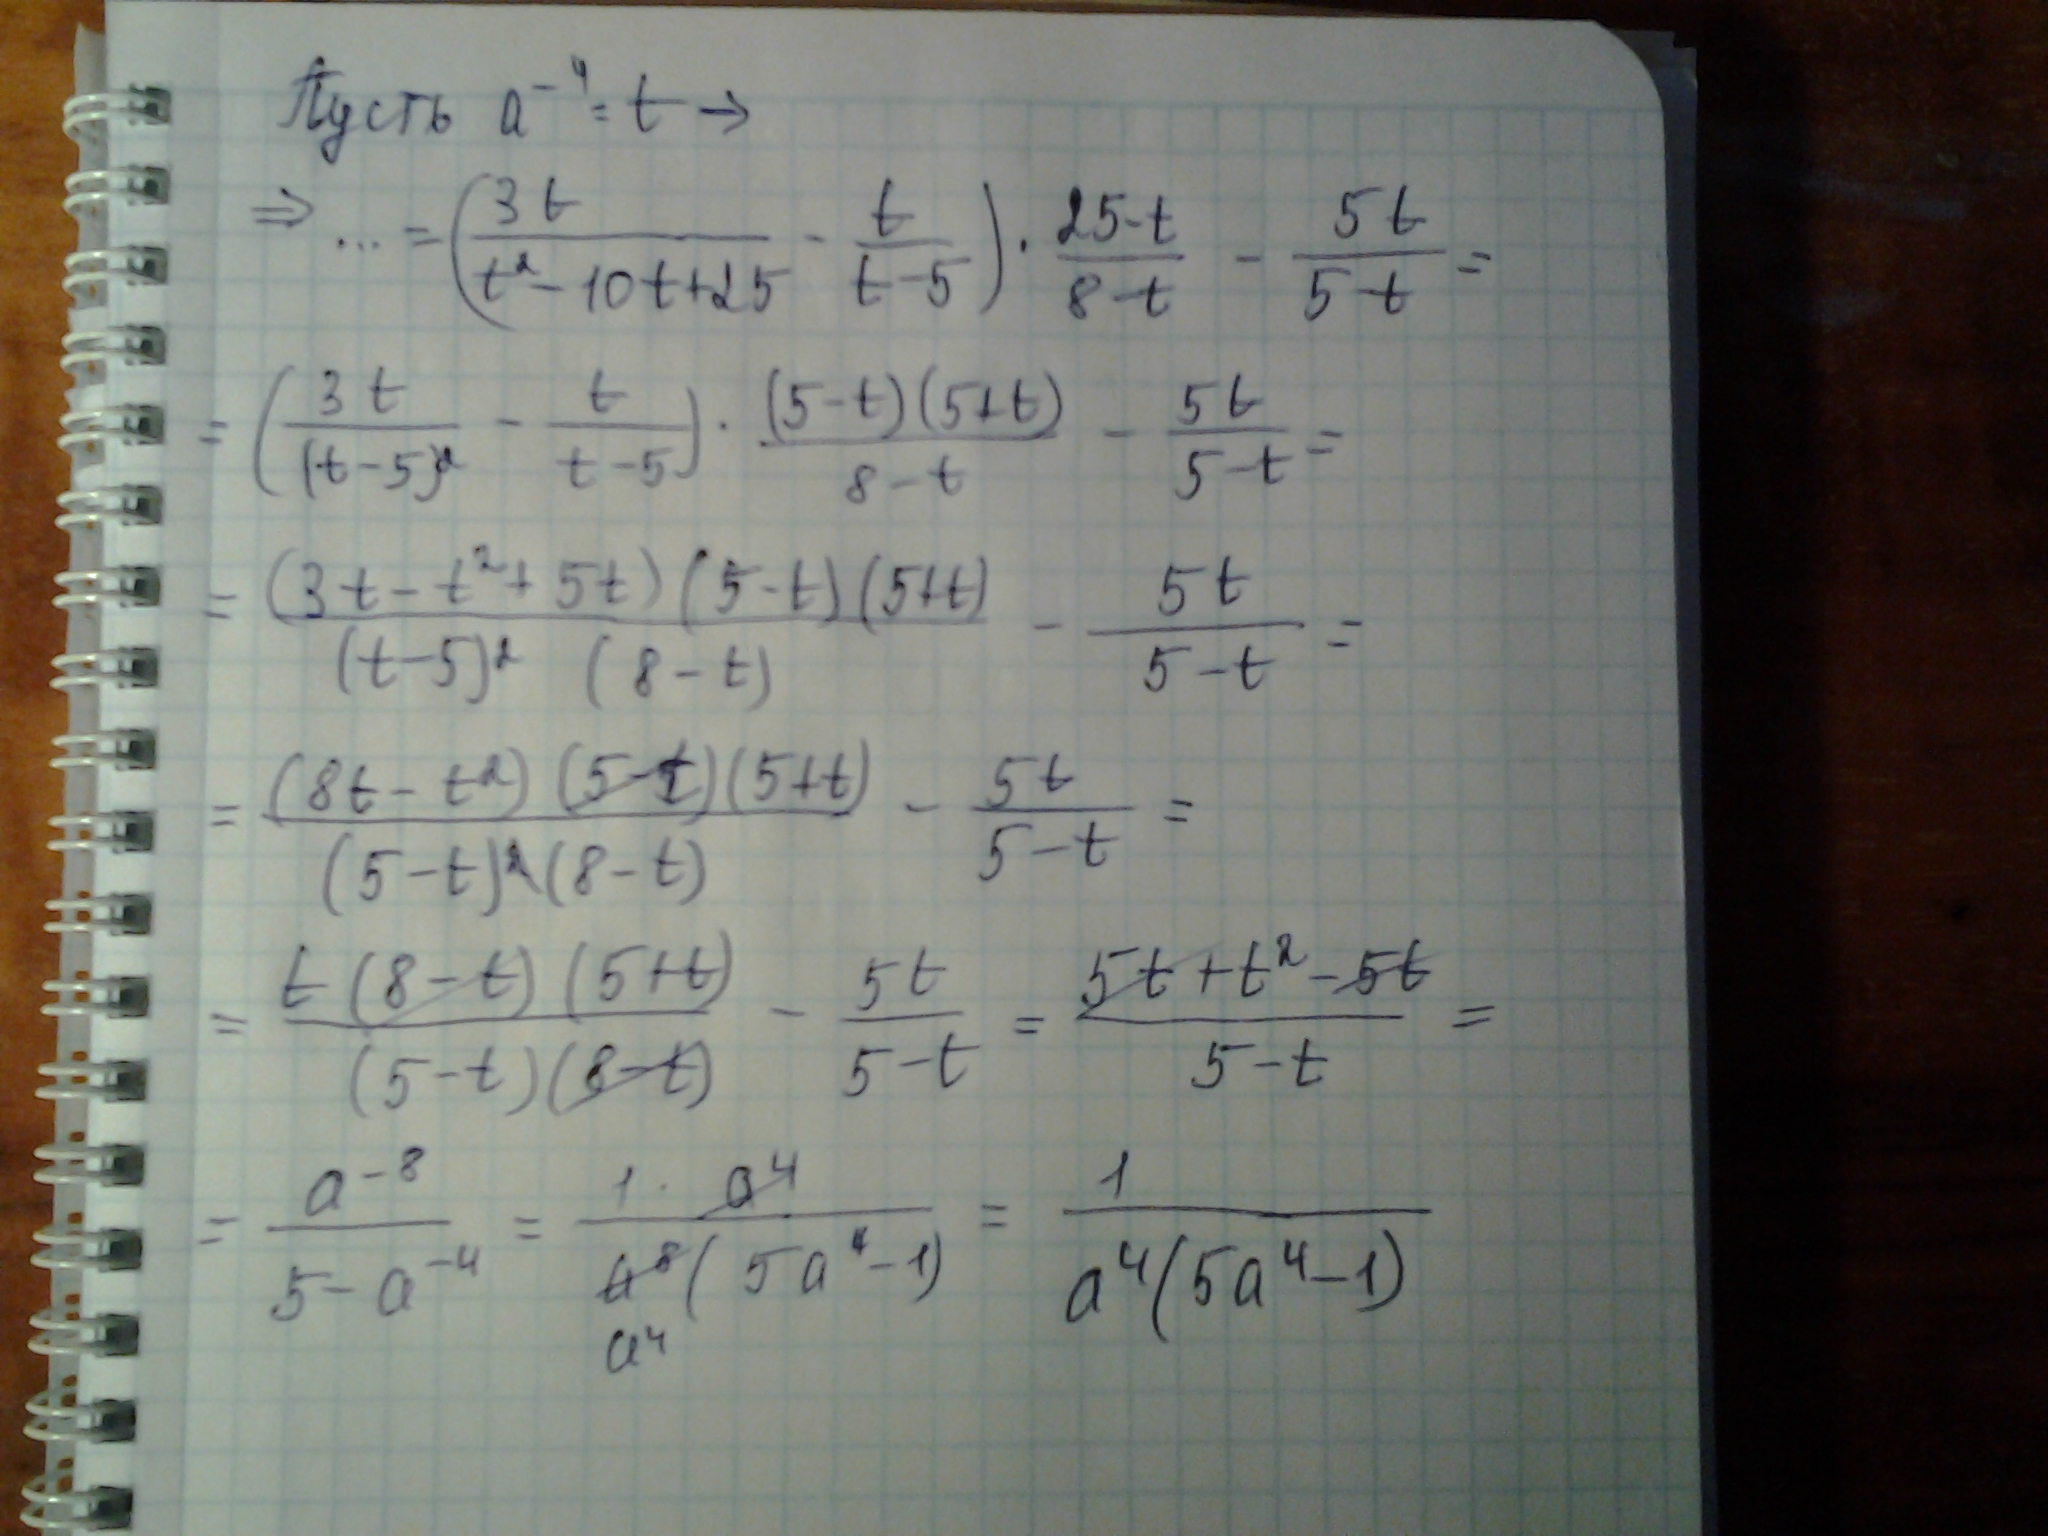 Пусть a⁻⁴ = t →
⇒ ... = (3t/(t² - 10t + 25) - t/(t - 5)) · (25 - t)/(8 - t) - 5t/(5 - t) =
= (3t/(t - 5)² - t/(t - 5)) · (5 - t)(5 + t)/(8 - t) - 5t/(5 - t) =
= (3t - t² + 5t)(5 - t)(5 + t)/((t - 5)² (8 - t)) - 5t/(5 - t) =
= (8t - t²)(5 - t)(5 + t)/((5 - t)²(8 - t)) - 5t/(5 - t) =
= t(8 - t)(5 + t)/((5 - t)(8 - t)) - 5t/(5 - t) = (5t + t² - 5t)/(5 - t) =
= a⁻⁸/(5 - a⁻⁴) = 1 · a⁴/(a⁸(5a⁴ - 1)) = 1/(a⁴(5a⁴ - 1))
a⁴